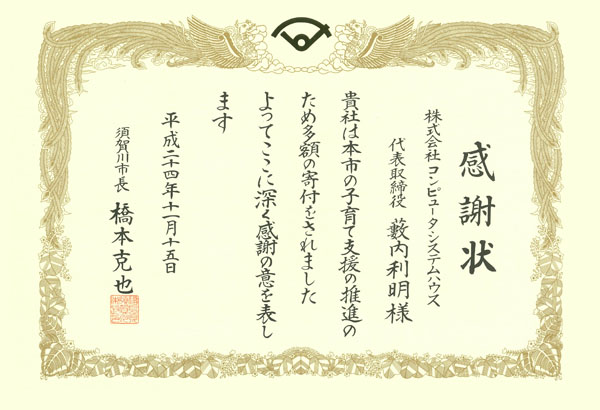 感謝状
株式会社コンピュータシステムハウス
代表取締役 藪内利明様
貴社は本市の子育て支援の推進の
ため多額の寄付をされました
よってここに深く感謝の意を表し
ます
平成二十四年十一月十五日
須賀川市長 橋本克也